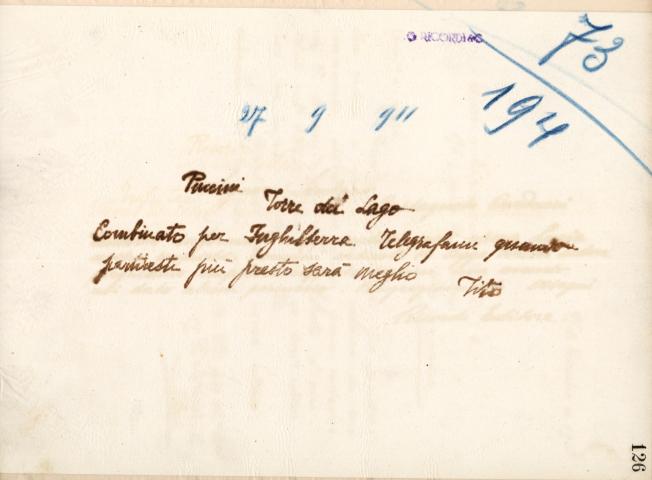 G. RICORDI & C.
73
194
27 9 911
Puccini
Torre del Lago
Combinato per Inghilterra Telegrafami quando
partiresti più presto sarà meglio
Tito
126